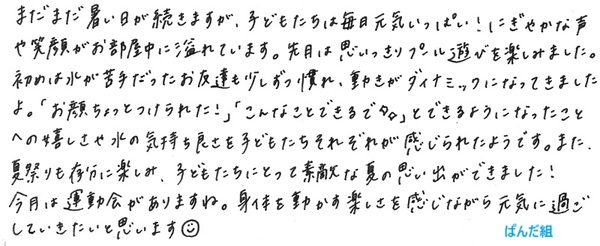 まだまだ暑い日が続きますが、子どもたちは毎日元気いっぱい!にぎやかな声
や笑顔がお部屋中に溢れています。先月は思いっきりプール遊びを楽しみました。
初めは水が苦手だったお友達も少しずつ慣れ、動きがダイナミックになってきました
よ。「お顔ちょっとつけられた!」「こんなことできるで〜。」とできるようになったこと
への嬉しさや水の気持ち良さを子どもたちそれぞれが感じられたようです。また、
夏祭りも存分に楽しみ、子どもたちにとって素敵な夏の思い出ができました!
今月は運動会がありますね。身体を動かす楽しさを感じながら元気に過ご
していきたいと思います☺
ぱんだ組